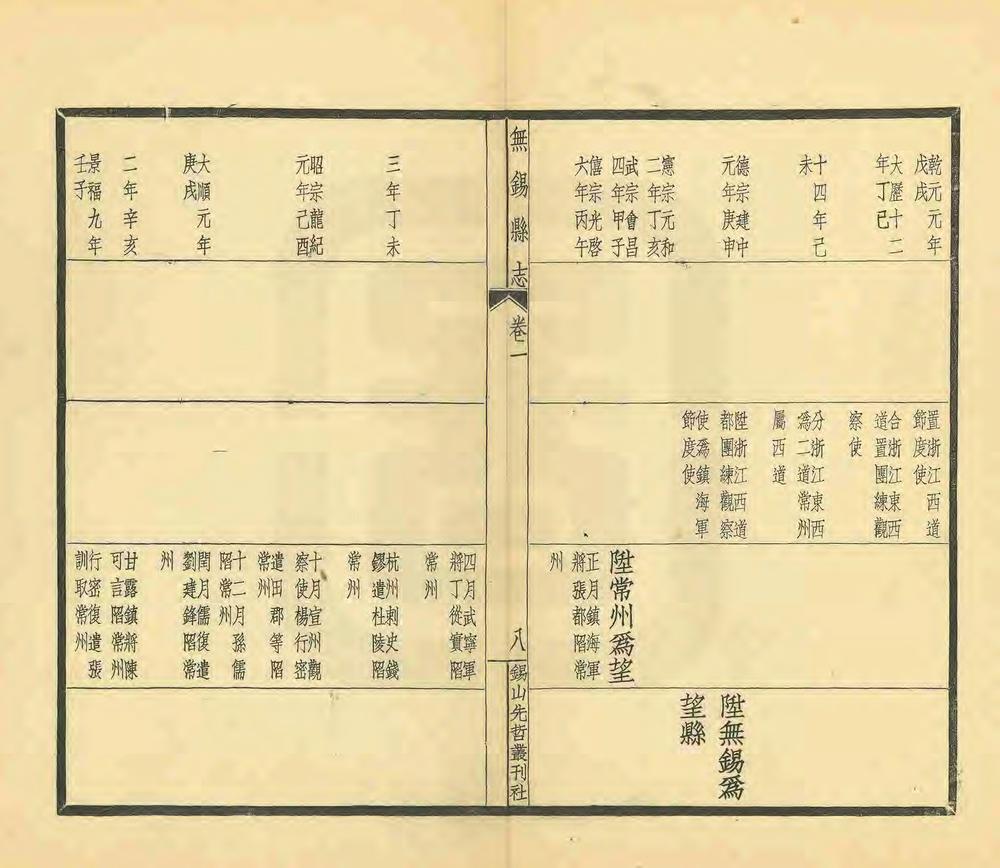 乾元元年
戊戌
大歷十二
年丁巳
十四年己
未
德宗建中
元年庚申
憲宗元和
二年丁亥
武宗會昌
四年甲子
僖宗光啓
六年丙午
置浙江西道
節度使
合浙江東西
道置團練觀
察使
分浙江東西
爲二道常州
屬西道
陞浙江西道
都團練觀察
使爲鎮海軍
節度使
陞常州爲望
正月鎮海軍
將張都陷常
州
陞無錫爲
望縣
無錫縣志
卷一
八
錫山先哲叢刊社
三年丁未
昭宗龍紀
元年己酉
大順元年
庚戌
二年辛亥
景福九年
壬子
四月武寧軍
將丁從實陷
常州
杭州刺史錢
鏐遣杜陵陷
常州
十月宣州觀
察使楊行密
遣田郡等陷
常州
十二月孫儒
陷常州
閏月儒復遣
劉建鋒陷常
州
甘露鎮將陳
可言陷常州
行密復遣張
訓取常州